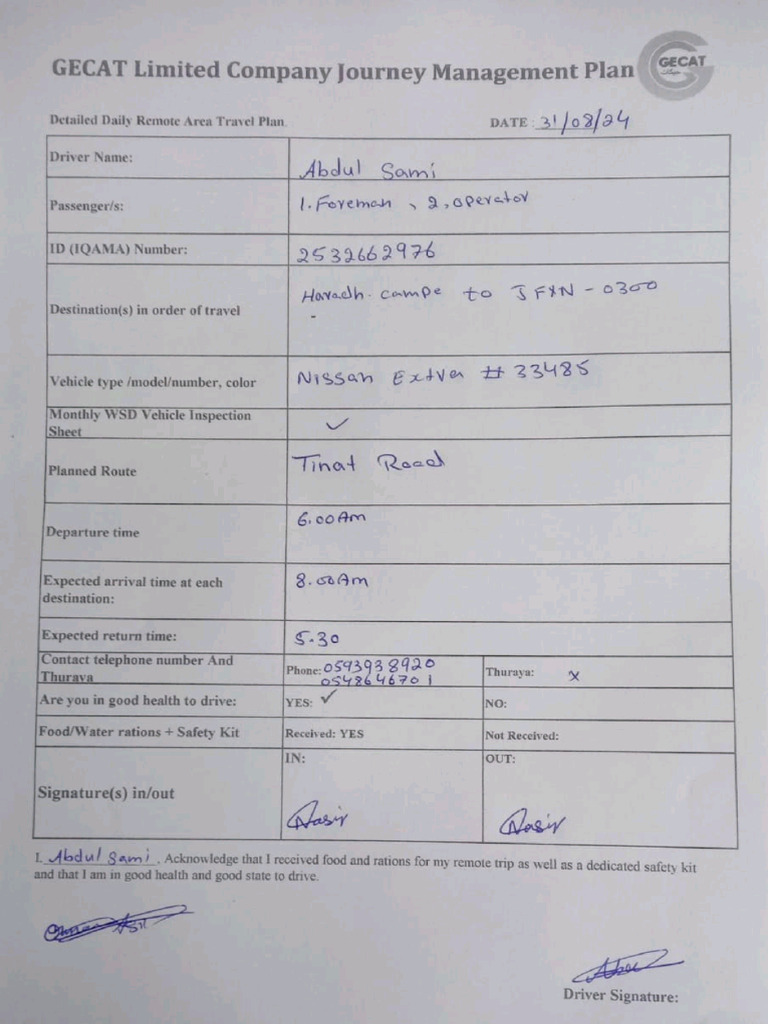 GECAT Limited Company Journey Management Plan
GECAT
Detailed Daily Remote Area Travel Plan
DATE : 31/08/24
Driver Name: Abdul Sami
Passenger/s: 1. Foreman , 2, operator
ID (IQAMA) Number: 2532662976
Destination(s) in order of travel Haradh campe to JFXN - 0300
Vehicle type /model/number, color Nissan # 33485
Monthly WSD Vehicle Inspection
Sheet ✓
Planned Route Tinat Road
Departure time 6.00 Am
Expected arrival time at each
destination: 8.00 Am
Expected return time: 5.30
Contact telephone number And
Thuraya Phone: 0593938920
0548646701
Thuraya: x
Are you in good health to drive: YES: ✓ NO:
Food/Water rations + Safety Kit Received: YES Not Received:
Signature(s) in/out IN: Nasir OUT: Nasir
I. Abdul Sami . Acknowledge that I received food and rations for my remote trip as well as a dedicated safety kit
and that I am in good health and good state to drive.
Driver Signature: